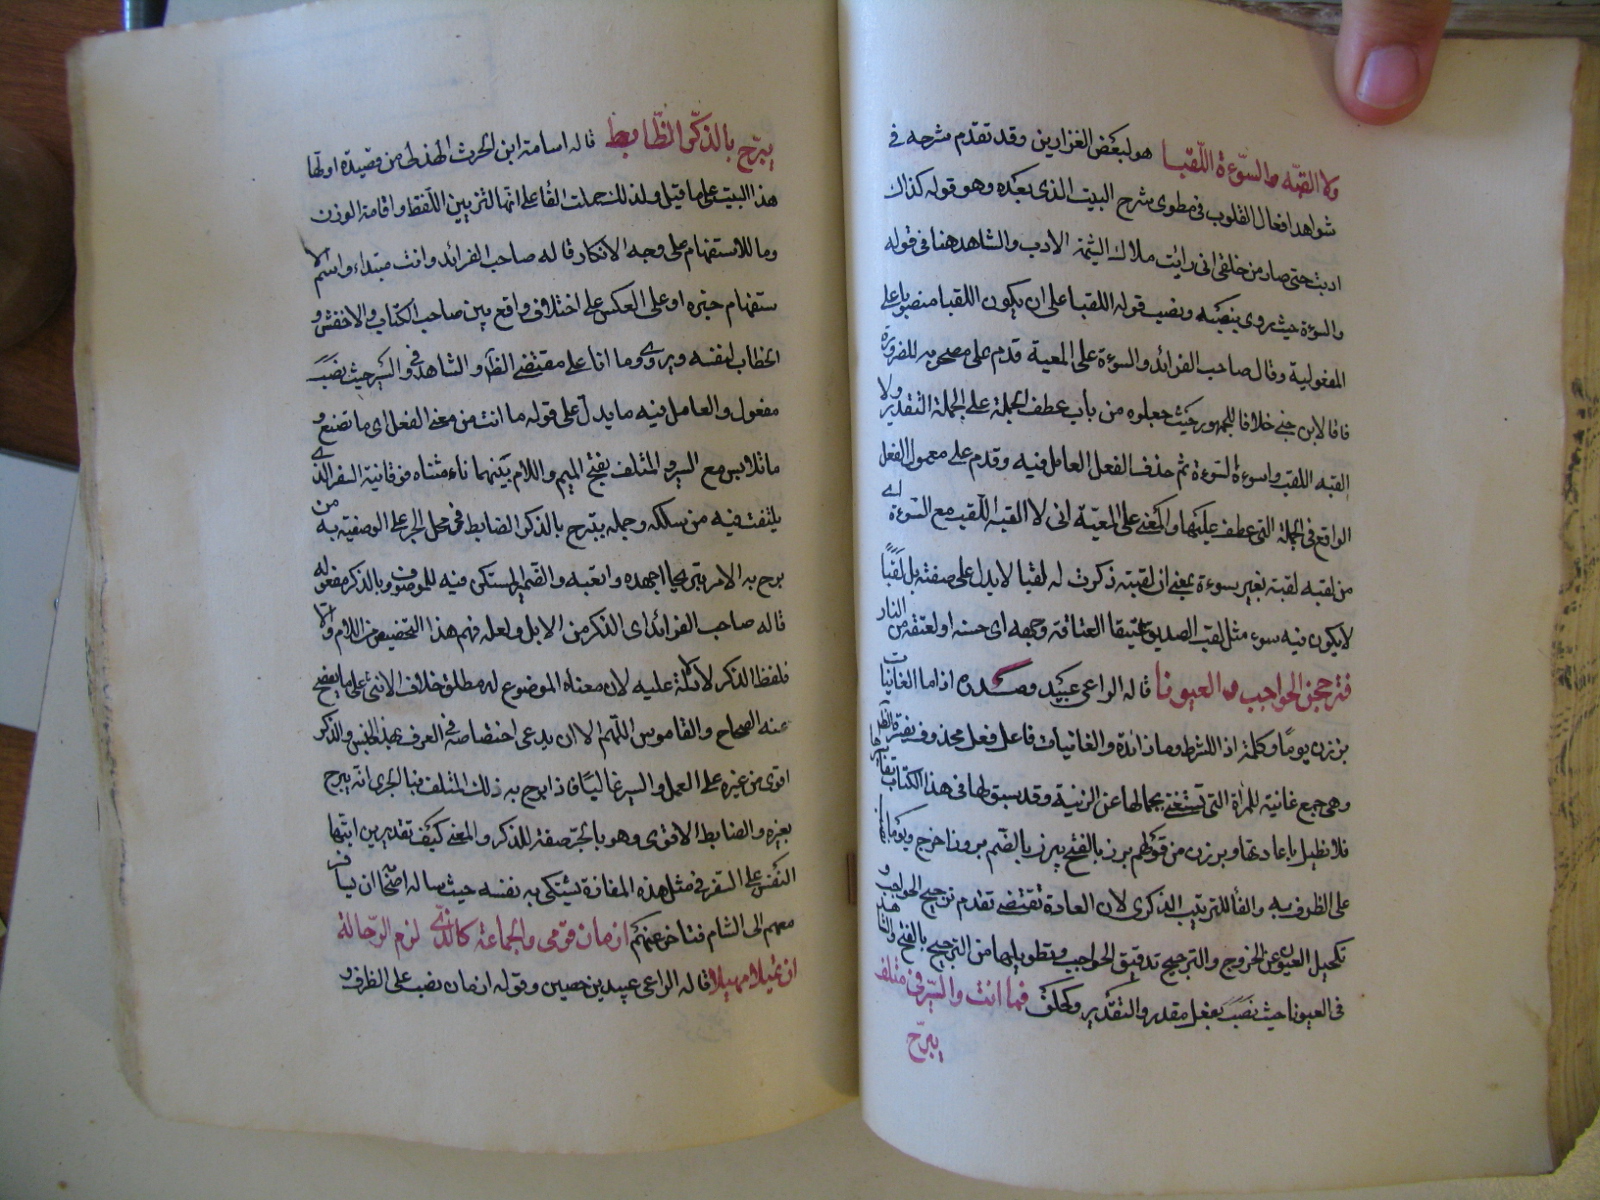 ولا القبه والسّوءة اللّقبا هو لبعض الفزاريين وقد تقدم شرحه في
شواهد افعال القلوب في مطوى شرح البيت الذى بعده وهو قوله كذاك
ادبت حتى صار من خلقى انى رايت ملاك الشيمة الادب والشاهد هنا فى قوله
والسوءة حيث روى بنصبه ونصب قوله اللقبا على ان يكون اللقبا منصوبا على
المفعولية وقال صاحب الفرائد والسوءة على المعية قدم على مصحوبه للضرورة
فاقا لابن جنى خلافا للجمهور حيث جعلوه من باب عطف الجملة على الجملة التقدير ولا
القبه اللقب واسوءه السّوءة ثم حذف الفعل العامل فيه وقدم على معمول الفعل
الواقع فى الجملة التى عطف عليها والمعنى على المعيّة انى لا القبه اللّقب مع السّوءة اى
من لقبه لقبته بغير سوءة بمعنى ان لقبته ذكرت له لقبا لا يدل على صفته بل لقبًا
لا يكون فيه سوء مثل لقب الصديق عتيقا لعتاقة وجهه اى حسنه او لعتقه من النار
فترججن الحواجب والعيونا قاله الراعى عبيد وصدره اذا ما الغانيات
برزن يومًا وكلمة اذا للشرط وما زائدة والغانيات فاعل فعل محذوف يفسره الظاهر
وهى جمع غانية للمرأة التى تستغنى بجمالها عن الزينة وقد سبق لها فى هذا الكتاب
فلا نطيل باعادتها وبرزن من قولهم برز بالفتح يبرز بالضم بروزا خرج ويوما
على الظرف به والفا للترتيب الذكرى لان العادة تقتضى تقدم تزجيج الحواجب و
تكحيل العيون عن الخروج والتزجيج تدقيق الحواجب وتطويلها من الزجج بالفتح والشاهد
فى العيونا حيث نصب بفعل مقدر والتقدير وكحلن فما انت والسّير فى متلف
يبرّح
يبرّح بالذكر الضّابط قاله اسامة ابن الحرث الهذلى من قصيدة اولها
هذا البيت على ما قيل ولذلك حملت الفاعلى انها لتزيين اللّفظ واقامة الوزن
وما للاستفهام على وجه الانكار قاله صاحب الفرائد وانت مبتداء واسم الا
ستفهام خبره او على العكس على اختلاف واقع بين صاحب الكتاب والاخفش و
الخطاب لنفسه ويروى وما انا على مقتضى الظاهر والشاهد فى والسير حيث نصب
مفعول والعامل فيه ما يدل على قوله ما انت من معنى الفعل اى ما تصنع و
ما تلابس مع السير والمتلف بفتح الميم واللام بينهما تاء مثناه فوقانية السفر الذى
يلتفت فيه من سلكه وجمله يبرح بالذكر الضابط فى محل الجر على الوصفية به من
برح به الامر تبريحا اجهده واتعبه والضمير المستكن فيه للموصوف وبالذكر مفعوله
قاله صاحب الفرائد اى الذكر من الابل ولعله فهم هذا التخصيص من اللام والا
فلفظ الذكر لا دلالة عليه لان معناه الموضوع له مطلق خلاف الانثى على ما يفصح
عنه الصحاح والقاموس اللّهم الا ان يدعى اختصاصه فى العرف بهذا الجنس والذكر
اقوى من غيره على العمل والسير غالبًا فاذا برح به ذلك المتلف فبالحرى انه يبرح
بغيره والضابط الاقوى وهو بالجر صفة للذكر والمعنى كيف تقديرين ايتها
النّفس على السفر فى مثل هذه المفازة يشتكى به نفسه حيث ساله اصحابه ان يسافر
معهم الى الشام فتاخر عنهم ازمان قومى والجماعة كالّذى لزم الرّحالة
ان تميل مميلا قاله الراعى عبيد بن حصين وقوله ازمان نصب على الظرف و